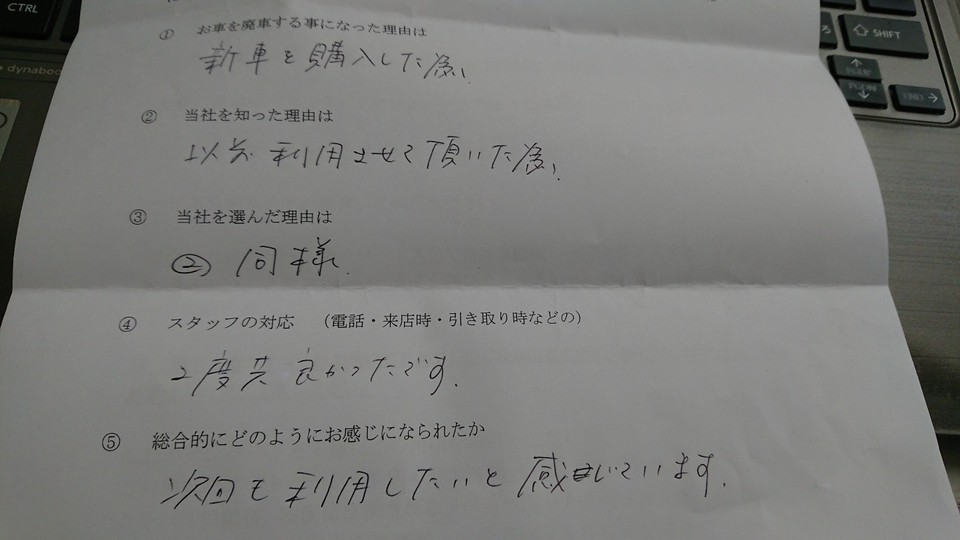 CTRL
dynaboo
SHIFT
END →
① お車を廃車する事になった理由は
新車を購入した為、
② 当社を知った理由は
以前利用させて頂いた為、
③ 当社を選んだ理由は
② 同様.
④ スタッフの対応 （電話・来店時・引き取り時などの）
2度共良かったです.
⑤ 総合的にどのようにお感じになられたか
次回も利用したいと感じています.